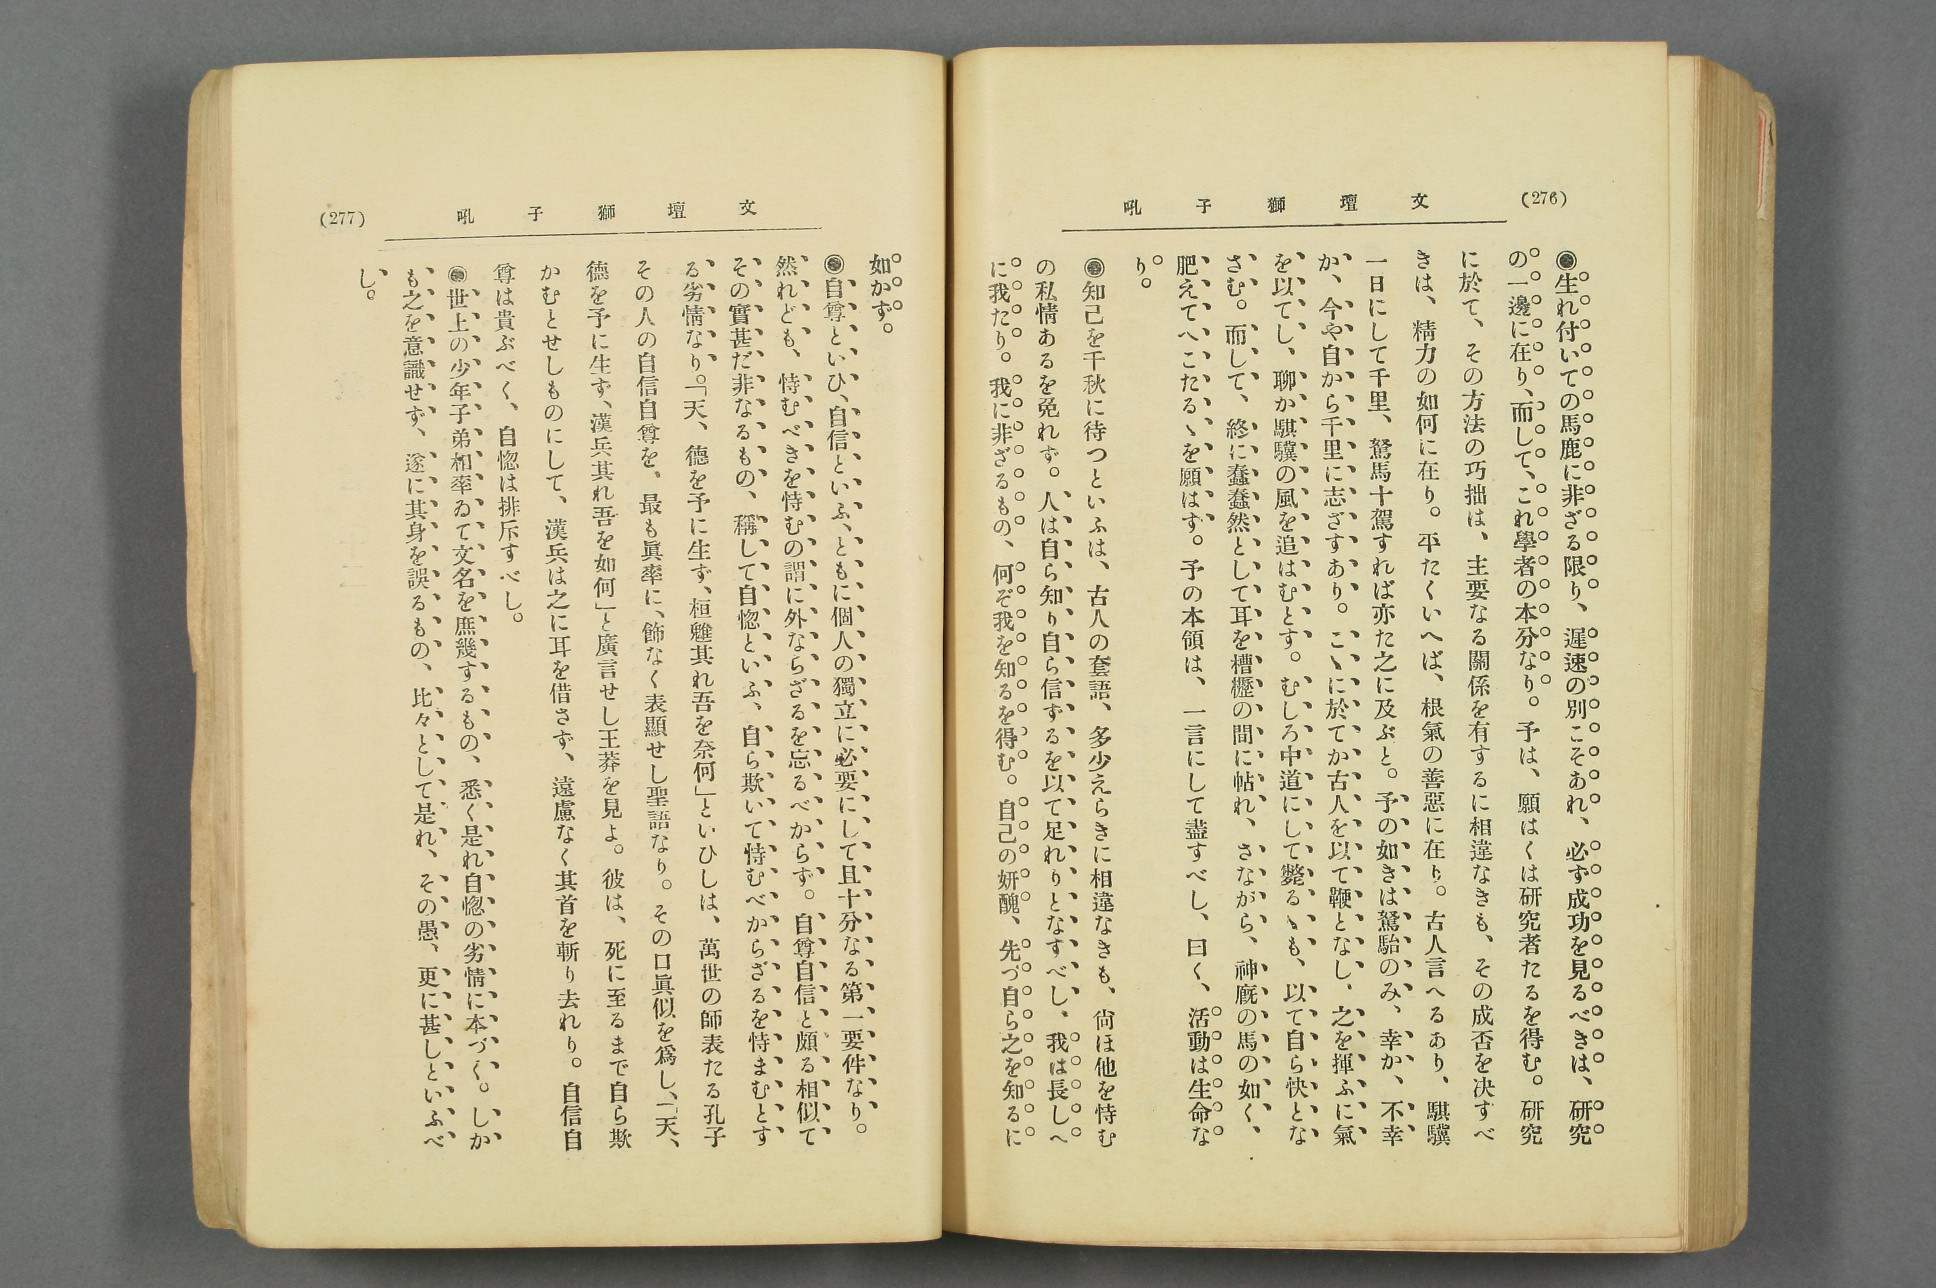 (276)
文壇獅子吼
◉生れ付いての馬鹿に非ざる限り、遲速の別こそあれ、必ず成功を見るべきは、研究
の一邊に在り、而して、これ學者の本分なり。予は、願はくは研究者たるを得む。研究
に於て、その方法の巧拙は、主要なる關係を有するに相違なきも、その成否を決すべ
きは、精力の如何に在り。平たくいへば、根氣の善惡に在り。古人言へるあり、騏驥
一日にして千里、駑馬十駕すれば亦た之に及ぶと。予の如きは駑駘のみ、幸か、不幸
か、今や自から千里に志ざすあり。こゝに於てか古人を以て鞭となし、之を揮ふに氣
を以てし、聊か騏驥の風を追はむとす。むしろ中道にして斃るゝも、以て自ら快とな
さむ。而して、終に蠢蠢然として耳を槽櫪の間に帖れ、さながら、神廐の馬の如く、
肥えてへこたるゝを願はず。予の本領は、一言にして盡すべし、曰く、活動は生命な
り。
◉知己を千秋に待つといふは、古人の套語、多少えらきに相違なきも、尙ほ他を恃む
の私情あるを免れず。人は自ら知り自ら信ずるを以て足れりとなすべし。我は長しへ
に我たり。我に非ざるもの、何ぞ我を知るを得む。自己の妍醜、先づ自ら之を知るに
文壇獅子吼
(277)
如かず。
◉自尊といひ、自信といふ、ともに個人の獨立に必要にして且十分なる第一要件なり。
然れども、恃むべきを恃むの謂に外ならざるを忘るべからず。自尊自信と頗る相似て
その實甚だ非なるもの、稱して自惚といふ、自ら欺いて恃むべからざるを恃まむとす
る劣情なり。「天、德を予に生ず、桓魋其れ吾を奈何」といひしは、萬世の師表たる孔子
その人の自信自尊を、最も眞率に、飾なく表顯せし聖語なり。その口眞似を爲し、「天、
德を予に生ず、漢兵其れ吾を如何」と廣言せし王莽を見よ。彼は、死に至るまで自ら欺
かむとせしものにして、漢兵は之に耳を借さず、遠慮なく其首を斬り去れり。自信自
尊は貴ぶべく、自惚は排斥すべし。
◉世上の少年子弟相率ゐて文名を庶幾するもの、悉く是れ自惚の劣情に本づく。しか
も之を意識せず、遂に其身を誤るもの、比々として是れ、その愚、更に甚しといふべ
し。